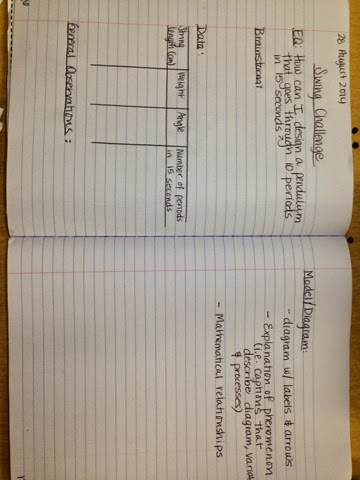 28 August 2014
Swing Challenge
EQ: How can I design a pendulum
that goes through 10 periods
in 15 seconds?
Brainstorm:
Data:
String length (cm) | Weight | Angle | Number of periods in 15 seconds
General Observations:
Model/Diagram:
- diagram w/ labels & arrows
- Explanation of phenomenon
(i.e. captions that
describe diagram,
& processes)
- Mathematical relationships